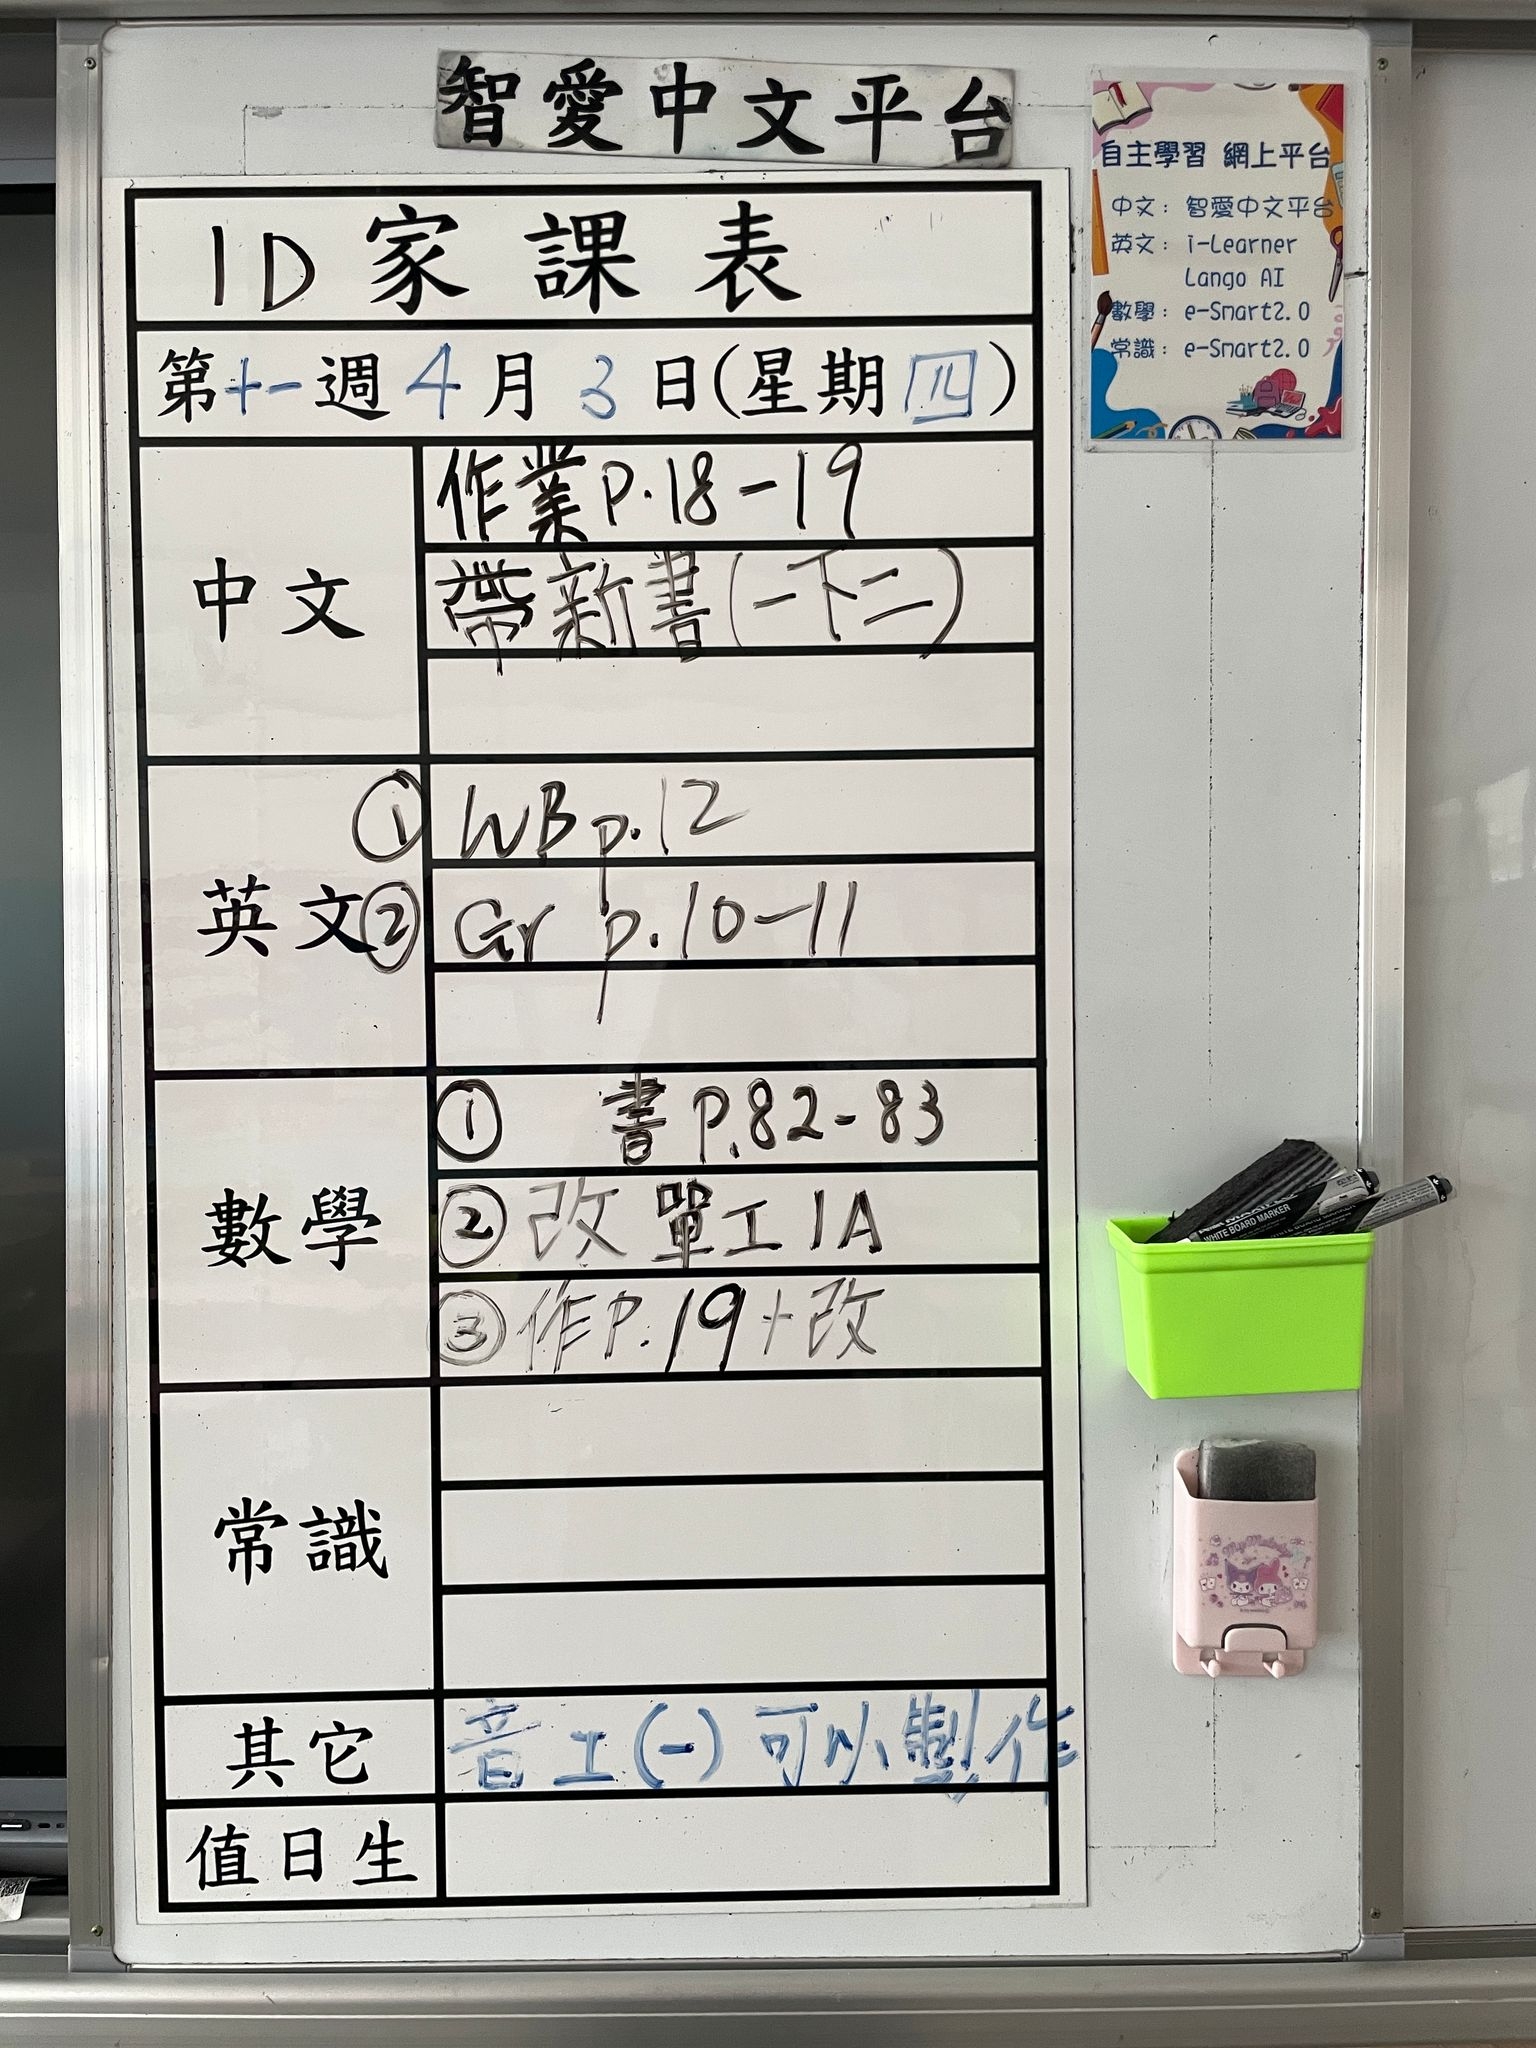 智愛中文平台
1D 家課表
第十一週 4月 3日(星期四)
中文
作業 P.18-19
帶新書(一下二)
英文
① WB p.12
② Gr p.10-11
數學
① 書 P.82-83
② 改 單工 1A
③ 作 P.19+改
常識
其它
音工(一)可以製作
值日生
自主學習 網上平台
中文：智愛中文平台
英文：i-Learner
Lango AI
數學：e-Smart2.0
常識：e-Smart2.0
WHITE BOARD MARKER
My Melody